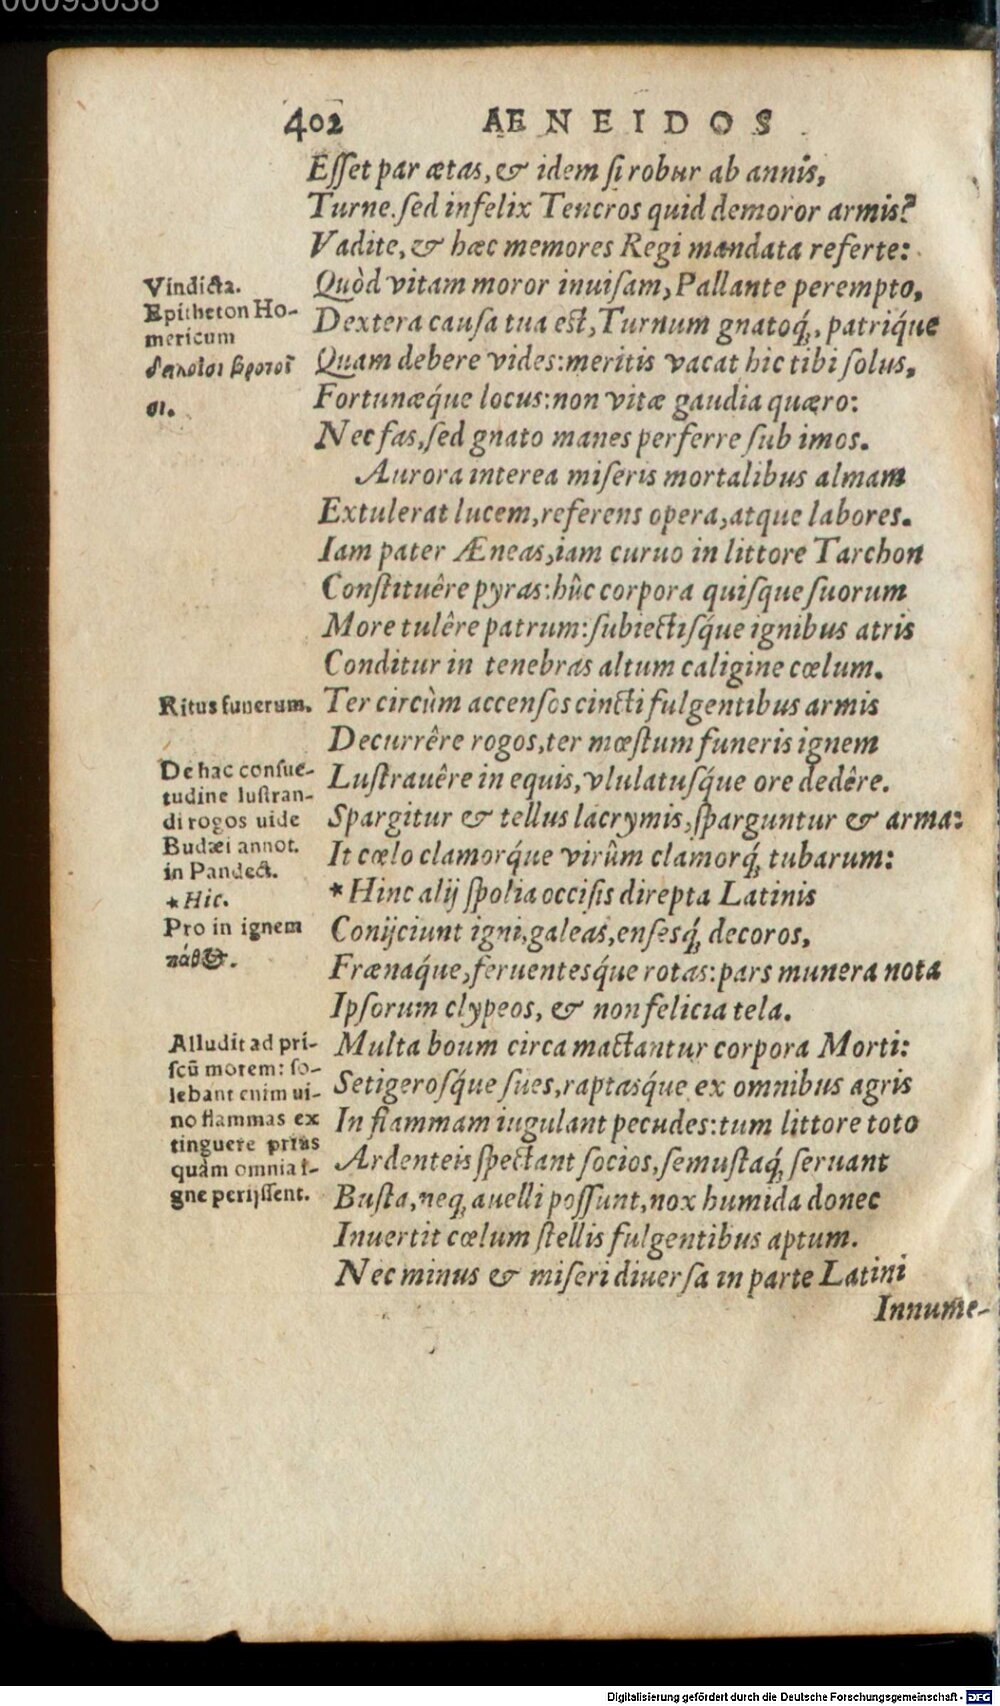 00093038
402 AENEIDOS
Esset par ætas, & idem si robur ab annis,
Turne. sed infelix Teucros quid demoror armis?
Vadite, & hæc memores Regi mandata referte:
Quòd vitam moror inuisam, Pallante perempto,
Dextera causa tua est, Turnum gnatoq́;, patriq́ue
Quam debere vides: meritis vacat hic tibi solus,
Fortunæq́ue locus: non vitæ gaudia quæro:
Nec fas, sed gnato manes perferre sub imos.
Aurora interea miseris mortalibus almam
Extulerat lucem, referens opera, atque labores.
Iam pater Æneas, iam curuo in littore Tarchon
Constituêre pyras: hûc corpora quisque suorum
More tulêre patrum: subiectisq́ue ignibus atris
Conditur in tenebras altum caligine cœlum.
Ter circùm accensos cincti fulgentibus armis
Decurrêre rogos, ter mœstum funeris ignem
Lustrauêre in equis, vlulatusq́ue ore dedêre.
Spargitur & tellus lacrymis, sparguntur & arma:
It cœlo clamorq́ue virûm clamorq́; tubarum:
*Hinc alij spolia occisis direpta Latinis
Conijciunt igni, galeas, ensesq́; decoros,
Frænaq́ue, feruentesq́ue rotas: pars munera nota
Ipsorum clypeos, & non felicia tela.
Multa boum circa mactantur corpora Morti:
Setigerosq́ue sues, raptasq́ue ex omnibus agris
In flammam iugulant pecudes: tum littore toto
Ardenteis spectant socios, semustaq́; seruant
Busta, neq; auelli possunt, nox humida donec
Inuertit cœlum stellis fulgentibus aptum.
Nec minus & miseri diuersa in parte Latini
Innume-
Vindicta.
Epitheton Ho-
mericum
δειλοῖσι βροτοῖ
σι.
Ritus funerum.
De hac consue-
tudine lustran-
di rogos uide
Budæi annot.
in Pandect.
*Hic.
Pro in ignem
πάθ⊕.
Alludit ad pri-
scũ morem: so-
lebant enim ui-
no flammas ex
tinguere prius
quàm omnia i-
gne perijssent.
Digitalisierung gefördert durch die Deutsche Forschungsgemeinschaft - DFG